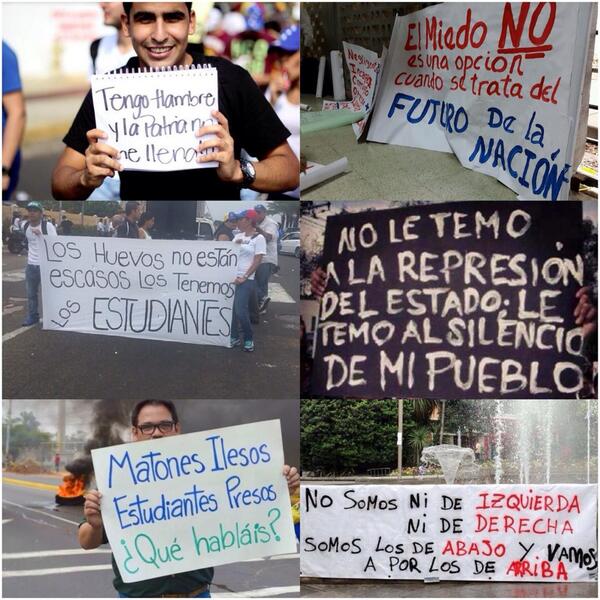 Tengo Hambre
y la Patria no
me llena!!
El Miedo NO
es una opción
cuando se trata del
FUTURO De la
NACIÓN
Los Huevos no están
escasos Los Tenemos
Los ESTUDIANTES
NO LE TEMO
A LA REPRESIÓN
DEL ESTADO; LE
TEMO AL SILENCIO
DE MI PUEBLO
Matones Ilesos
Estudiantes Presos
¿Qué habláis?
NO SOMOS NI DE IZQUIERDA
NI DE DERECHA
SOMOS LOS DE ABAJO Y VAMOS
A POR LOS DE ARRIBA